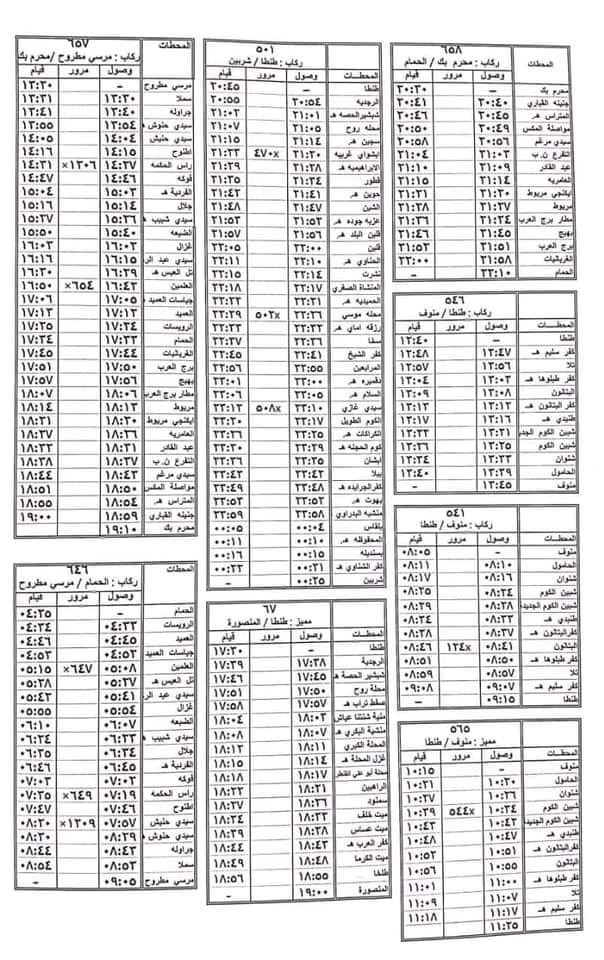 ٦٥٨
ركاب : محرم بك / الحمام
المحطات وصول مرور قيام
محرم بك – ٢٠:٣٠
جنينه القباري ٢٠:٤٠ ٢٠:٤١
المتراس هـ ٢٠:٤٥ ٢٠:٤٦
مواصلة المكس ٢٠:٤٩ ٢٠:٥٠
سيدي مرغم ٢٠:٥٦ ٢٠:٥٨
التفرع ن.ب ٢١:٠٣ ٢١:٠٤
عبد القادر ٢١:٠٩ ٢١:١٠
العامريه ٢١:١٤ ٢١:١٥
ايكنجي مريوط ٢١:٢٠ ٢١:٢١
مريوط ٢١:٢٧ ٢١:٢٨
مطار برج العرب ٢١:٣٤ ٢١:٣٦
بهيج ٢١:٤٥ ٢١:٤٦
برج العرب ٢١:٥١ ٢١:٥٣
الغربانيات ٢١:٥٨ ٢٢:٠٠
الحمام ٢٢:١٠ –
٥٤٦
ركاب : طنطا / منوف
المحطات وصول مرور قيام
طنطا – ١٢:٤٠
كفر سليم هـ ١٢:٤٧ ١٢:٤٨
تلا ١٢:٥٦ ١٢:٥٧
كفر طبلوها هـ ١٣:٠٣ ١٣:٠٤
البتانون ١٣:٠٨ ١٣:٠٩
كفر البتانون هـ ١٣:١٢ ١٣:١٣
طنبدي هـ ١٣:١٦ ١٣:١٧
شبين الكوم الجدي ١٣:٢١ ١٣:٢٢
شبين الكوم ١٣:٢٥ ١٣:٢٦
شنوان ١٣:٣٢ ١٣:٣٣
الحامول ١٣:٣٩ ١٣:٤٠
منوف ١٣:٤٥ –
٥٤١
ركاب : منوف / طنطا
المحطات وصول مرور قيام
منوف – ٠٨:٠٥
الحامول ٠٨:١٠ ٠٨:١١
شنوان ٠٨:١٦ ٠٨:١٧
شبين الكوم ٠٨:٢٤ ٠٨:٢٥
شبين الكوم الجديدة ٠٨:٢٨ ٠٨:٢٩
طنبدي هـ ٠٨:٣٣ ٠٨:٣٤
كفرالبتانون هـ ٠٨:٣٧ ٠٨:٣٨
البتانون ٠٨:٤١ ١٢٤x ٠٨:٤٦
كفر طبلوها هـ ٠٨:٥٠ ٠٨:٥١
تلا ٠٨:٥٧ ٠٨:٥٩
كفر سليم هـ ٠٩:٠٧ ٠٩:٠٨
طنطا ٠٩:١٥ –
٥٦٥
مميز : منوف / طنطا
المحطات وصول مرور قيام
منوف – ١٠:١٥
الحامول ١٠:٢٠ ١٠:٢١
شنوان ١٠:٢٦ ١٠:٢٧
شبين الكوم ١٠:٣٤ ٥٤٤x ١٠:٣٩
شبين الكوم الجديدة ١٠:٤٢ ١٠:٤٣
طنبدي هـ ١٠:٤٧ ١٠:٤٨
كفرالبتانون هـ ١٠:٥١ ١٠:٥٢
البتانون ١٠:٥٥ ١٠:٥٦
كفر طبلوها هـ ١١:٠٠ ١١:٠١
تلا ١١:٠٧ ١١:٠٩
كفر سليم هـ ١١:١٧ ١١:١٨
طنطا ١١:٢٥
٥٠١
ركاب : طنطا / شربين
المحطات وصول مرور قيام
طنطا – ٢٠:٤٥
الرجديه ٢٠:٥٤ ٢٠:٥٥
شبشيرالحصه هـ ٢١:٠١ ٢١:٠٢
محله روح ٢١:٠٥ ٢١:٠٧
سجين هـ ٢١:١٤ ٢١:١٥
ابشواي غربيه ٢١:٢٠ ٤٧٠x ٢١:٢٣
الابراهيميه هـ ٢١:٢٨ ٢١:٢٩
قطور ٢١:٣٤ ٢١:٣٥
حوين هـ ٢١:٤٢ ٢١:٤٣
الشين ٢١:٤٧ ٢١:٤٨
عزبه جوده هـ ٢١:٥٢ ٢١:٥٣
قلين البلد هـ ٢١:٥٦ ٢١:٥٧
قلين ٢٢:٠٠ ٢٢:٠٥
الحناوي هـ ٢٢:١٠ ٢٢:١١
نشرت ٢٢:١٤ ٢٢:١٥
المنشاة الصغري ٢٢:١٧ ٢٢:١٨
الحميديه هـ ٢٢:٢١ ٢٢:٢٢
محله موسي ٢٢:٢٦ ٥٠٢x ٢٢:٢٩
رزقه اماي هـ ٢٢:٣٢ ٢٢:٣٣
سخا ٢٢:٣٦ ٢٢:٣٧
كفر الشيخ ٢٢:٤١ ٢٢:٤٥
المرابعين ٢٢:٥٥ ٢٢:٥٦
دقميره هـ ٢٣:٠٠ ٢٣:٠١
السلام هـ ٢٣:٠٥ ٢٣:٠٦
سيدي غازي ٢٣:١٠ ٥٠٨x ٢٣:١٣
الكوم الطويل ٢٣:١٧ ٢٣:٢٠
الكراكات هـ ٢٣:٢٥ ٢٣:٢٦
كوم الحجنه هـ ٢٣:٢٩ ٢٣:٣٠
ابشان ٢٣:٣٥ ٢٣:٣٦
بيلا ٢٣:٤٢ ٢٣:٤٣
كفرالجرايده هـ ٢٣:٤٨ ٢٣:٤٩
بهوت هـ ٢٣:٥٢ ٢٣:٥٣
منشيه البدراوي ٢٣:٥٨ ٢٣:٥٩
بلقاس ٠٠:٠٤ ٠٠:٠٥
المحفوظه هـ ٠٠:١٠ ٠٠:١١
بسنديله ٠٠:١٥ ٠٠:١٦
كفر الشناوي هـ ٠٠:٢١ ٠٠:٢٢
شربين ٠٠:٢٥ –
٦٧
مميز : طنطا / المنصورة
المحطات وصول مرور قيام
طنطا – ١٧:٣٠
الرجدية ١٧:٣٨ ١٧:٣٩
شبشير الحصة هـ ١٧:٤٥ ١٧:٤٦
محلة روح ١٧:٥٠ ١٧:٥١
صفط تراب هـ ١٧:٥٧ ١٧:٥٨
منية شنتنا عياش ١٨:٠٣ ١٨:٠٤
منشية البكري هـ ١٨:٠٧ ١٨:٠٨
المحلة الكبري ١٨:١١ ١٨:١٣
غزل المحلة هـ ١٨:١٤ ١٨:١٥
محلة أبو علي القنطر ١٨:١٧ ١٨:١٨
الراهبين ١٨:٢١ ١٨:٢٢
سمنود ١٨:٢٦ ١٨:٢٧
ميت خلف ١٨:٣٣ ١٨:٣٤
ميت عساس ١٨:٣٨ ١٨:٣٩
كفر العرب هـ ١٨:٤٣ ١٨:٤٤
ميت الكرما ١٨:٤٨ ١٨:٤٩
طلخا ١٨:٥٥ ١٨:٥٦
المنصورة ١٩:٠٠ –
٦٥٧
ركاب : مرسي مطروح /محرم بك
المحطات وصول مرور قيام
مرسي مطروح – ١٣:٢٠
سملا ١٣:٣٠ ١٣:٣١
جراوله ١٣:٤٠ ١٣:٤١
سيدي حنوش هـ ١٣:٥٤ ١٣:٥٥
سيدي حنيش ١٤:٠٤ ١٤:٠٥
اطنوح ١٤:١٥ ١٤:١٦
راس الحكمه ١٤:٢٧ ١٣٠٦x ١٤:٣١
فوكه ١٤:٤٦ ١٤:٤٧
الفردية هـ ١٥:٠٣ ١٥:٠٤
جلال ١٥:١٤ ١٥:١٦
سيدي شبيب هـ ١٥:٢٦ ١٥:٢٧
الضبعه ١٥:٤٠ ١٥:٥٠
غزال ١٦:٠٢ ١٦:٠٣
سيدي عبد الر ١٦:١٥ ١٦:١٦
تل العيس هـ ١٦:٢٩ ١٦:٣٠
العلمين ١٦:٤٢ ٦٥٤x ١٦:٥٠
جباسات العميد ١٧:٠٥ ١٧:٠٦
العميد ١٧:١٢ ١٧:١٣
الرويسات ١٧:٢٤ ١٧:٢٥
الحمام ١٧:٣٣ ١٧:٣٤
الغربانيات ١٧:٤٤ ١٧:٤٥
برج العرب ١٧:٥٠ ١٧:٥١
بهيج ١٧:٥٦ ١٧:٥٧
مطار برج العرب ١٨:٠٦ ١٨:٠٧
مريوط ١٨:١٣ ١٨:١٤
ايكنجي مريوط ١٨:٢٠ ١٨:٢١
العامريه ١٨:٢٦ ١٨:٢٧
عبد القادر ١٨:٣١ ١٨:٣٢
التفرع ن.ب ١٨:٣٧ ١٨:٣٨
سيدي مرغم ١٨:٤٣ ١٨:٤٤
مواصلة المكس ١٨:٥٠ ١٨:٥١
المتراس هـ ١٨:٥٤ ١٨:٥٥
جنينه القباري ١٨:٥٩ ١٩:٠٠
محرم بك ١٩:١٠
٦٤٦
ركاب : الحمام / مرسي مطروح
المحطات وصول مرور قيام
الحمام – ٠٤:٢٥
الرويسات ٠٤:٣٣ ٠٤:٣٤
العميد ٠٤:٤٥ ٠٤:٤٦
جباسات العميد ٠٤:٥٢ ٠٤:٥٣
العلمين ٠٥:٠٨ ٦٤٧x ٠٥:١٥
تل العيس هـ ٠٥:٢٧ ٠٥:٢٨
سيدي عبد الر ٠٥:٤١ ٠٥:٤٢
غزال ٠٥:٥٤ ٠٥:٥٥
الضبعه ٠٦:٠٧ ٠٦:١٠
سيدي شبيب هـ ٠٦:٢٣ ٠٦:٢٤
جلال ٠٦:٣٤ ٠٦:٣٥
الفردية هـ ٠٦:٤٥ ٠٦:٤٦
فوكه ٠٧:٠٢ ٠٧:٠٣
راس الحكمه ٠٧:١٩ ٦٤٩x ٠٧:٣٥
اطنوح ٠٧:٤٦ ٠٧:٤٧
سيدي حنيش ٠٧:٥٧ ١٣٠٩x ٠٨:٢٠
سيدي حنوش هـ ٠٨:٢٩ ٠٨:٣٠
جراوله ٠٨:٤٣ ٠٨:٤٤
سملا ٠٨:٥٣ ٠٨:٥٤
مرسي مطروح ٠٩:٠٥ –